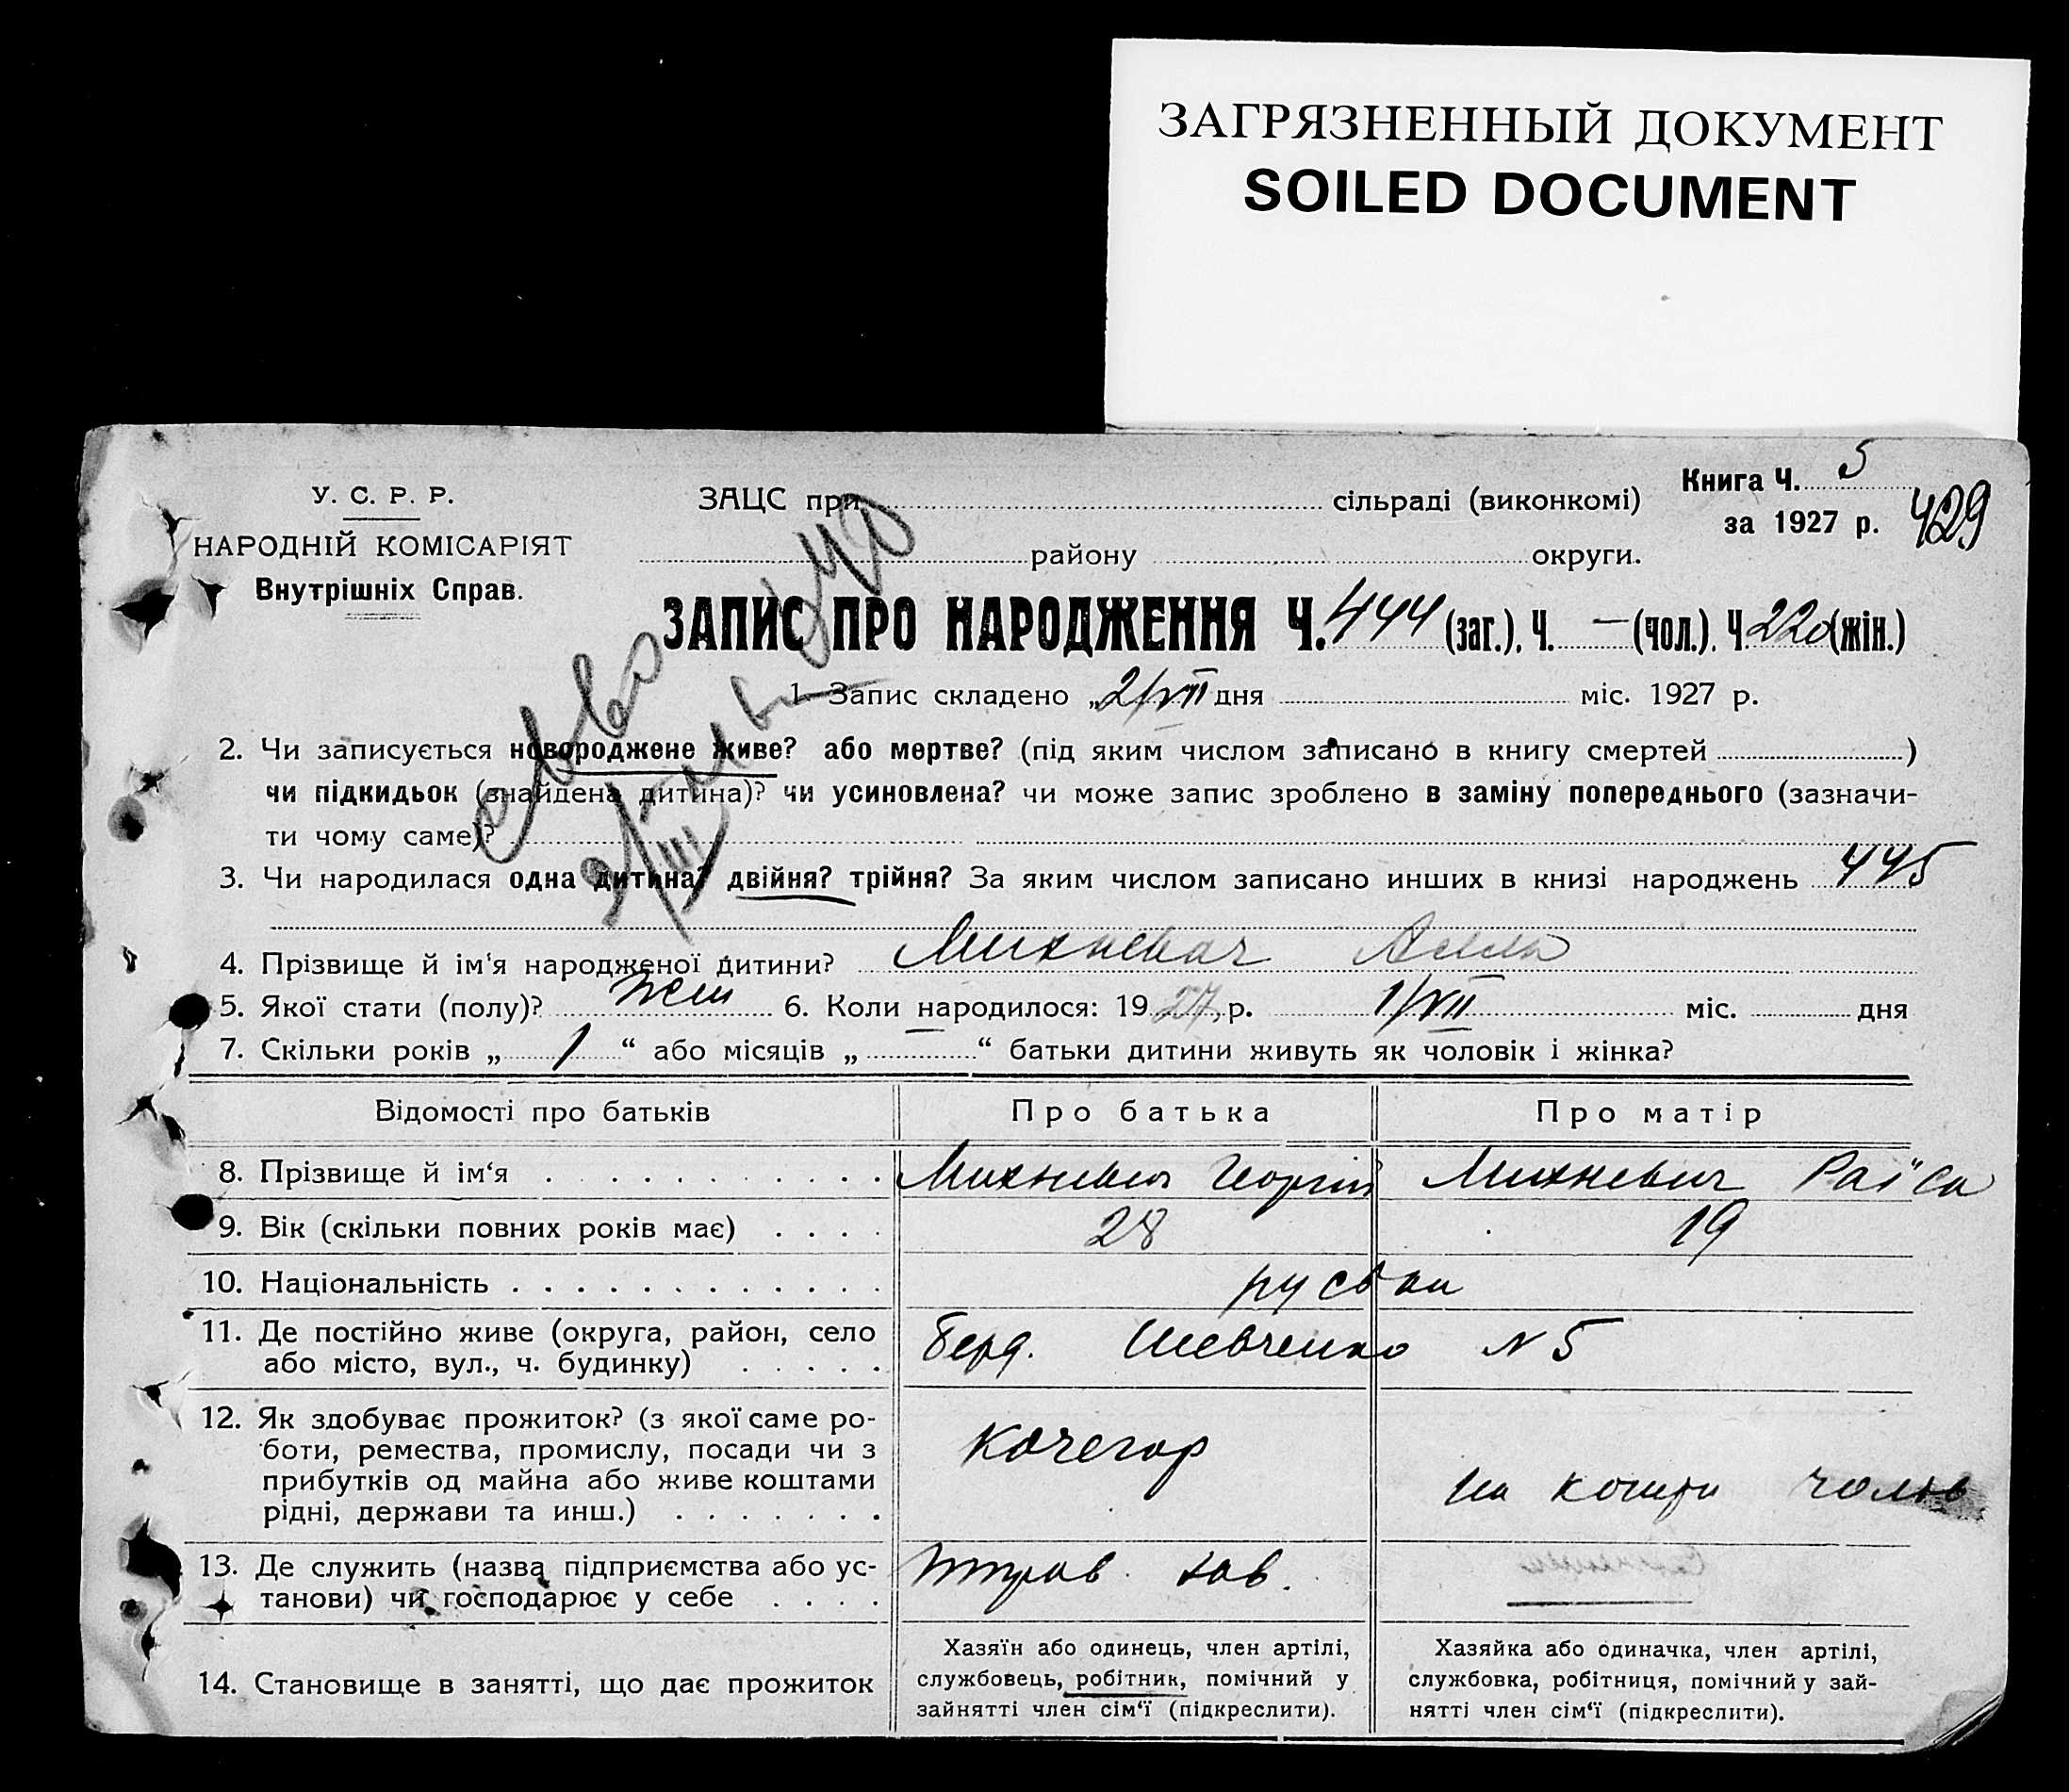 ЗАГРЯЗНЕННЫЙ ДОКУМЕНТ
SOILED DOCUMENT
Книга Ч. 5
за 1927 р. 429
У. С. Р. Р.
НАРОДНІЙ КОМІСАРІЯТ
Внутрішніх Справ.
ЗАЦС при сільраді (виконкомі)
району округи.
ЗАПИС ПРО НАРОДЖЕННЯ Ч. 444 (заг.), Ч. — (чол.), Ч. 220 (жін.)
1. Запис складено „2/VII дня міс. 1927 р.
2. Чи записується новороджене живе? або мертве? (під яким числом записано в книгу смертей )
чи підкидьок (знайдена дитина)? чи усиновлена? чи може запис зроблено в заміну попереднього (зазначи-
ти чому саме)?
3. Чи народилася одна дитина? двійня? трійня? За яким числом записано инших в книзі народжень 445
4. Прізвище й ім'я народженої дитини? Михневич
5. Якої стати (полу)? жін 6. Коли народилося: 1927 р. 1/VII міс. дня
7. Скільки років „ 1 “ або місяців „ “ батьки дитини живуть як чоловік і жінка?
Відомості про батьків Про батька Про матір
8. Прізвище й ім‘я Михневич Георгій Михневич Раїса
9. Вік (скільки повних років має) 28 19
10. Національність руські
11. Де постійно живе (округа, район, село
або місто, вул., ч. будинку)
Берд. Шевченко N 5
12. Як здобуває прожиток? (з якої саме ро-
боти, ремества, промислу, посади чи з
прибутків од майна або живе коштами
рідні, держави та инш.)
Кочегар
на кошти чолов
13. Де служить (назва підприємства або ус-
танови) чи господарює у себе
зав.
14. Становище в занятті, що дає прожиток
Хазяїн або одинець, член артілі,
службовець, робітник, помічний у
зайнятті член сім‘ї (підкреслити).
Хазяйка або одиначка, член артілі,
службовка, робітниця, помічний у зай-
нятті член сім‘ї (підкреслити).